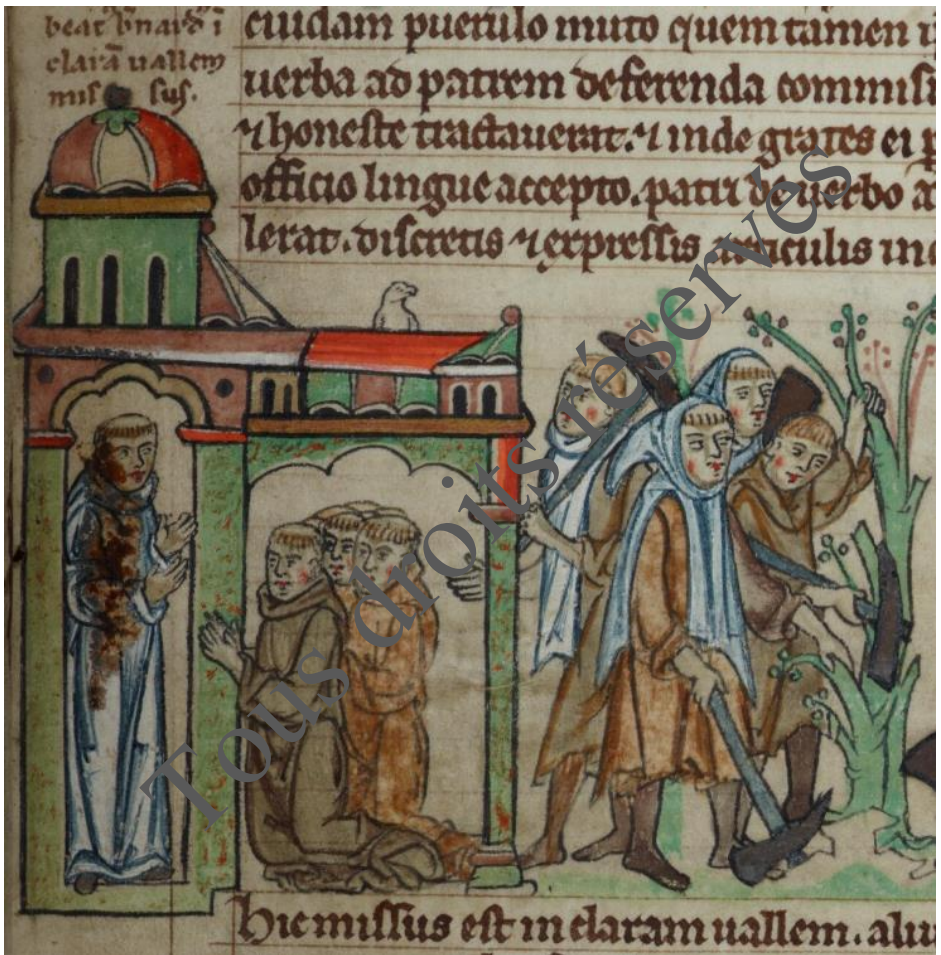 beat bnard i
clarā uallem
missus.
cuidam puerulo muto quem tamen
uerba ad patrem deferenda commisi
⁊ honeste tractauerat. ⁊ inde grates ei
officio lingue accepto. patri de uerbo
lerat. discretis ⁊ expressis articulis
Tous droits réservés
Hic missus est in claram uallem.